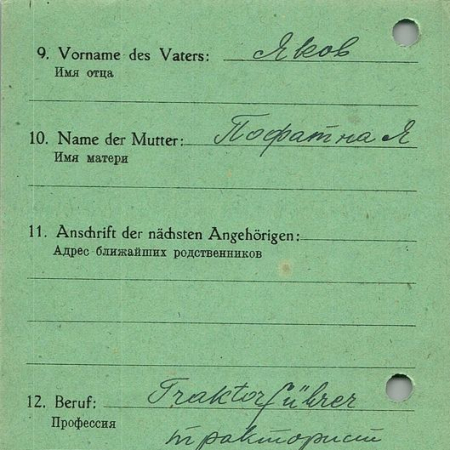 9. Vorname des Vaters: Яков
Имя отца
10. Name der Mutter: Пофатная
Имя матери
11. Anschrift der nächsten Angehörigen:
Адрес ближайших родственников
12. Beruf: Traktorführer
Профессия тракторист